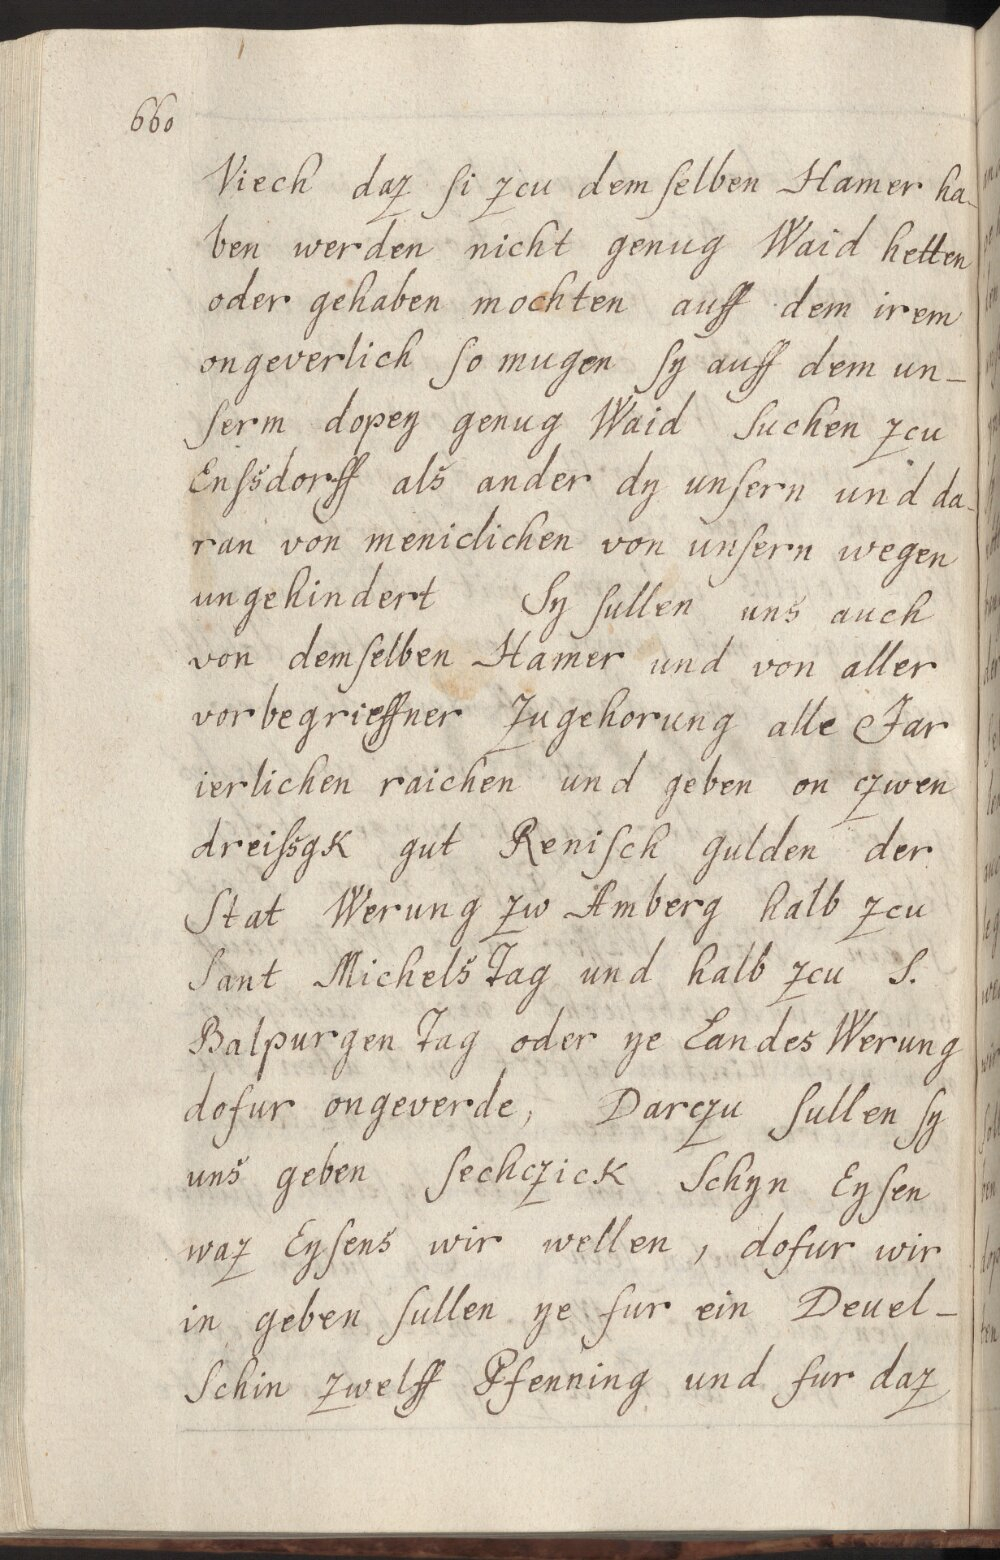 660
Viech daz si zcu demselben Hamer ha-
ben werden nicht genug Waid hetten
oder gehaben mochten auff dem irem
ongeverlich so mugen sy auff dem un-
serm dopey genug Waid suchen zcu
Enssdorff als ander dy unsern und da-
ran von meniclichen von unsern wegen
ungehindert Sy sullen uns auch
von demselben Hamer und von aller
vorbegrieffner Zugehorung alle Jar
ierlichen raichen und geben on czwen
dreissgk gut Renisch gulden der
Stat Werung zw Amberg halb zcu
Sant Michels Tag und halb zcu S.
Balpurgen Tag oder ye Landes Werung
dofur ongeverde, Darczu sullen sy
uns geben sechczick Schyn Eysen
waz Eysens wir wellen, dofur wir
in geben sullen ye fur ein Deuel-
Schin zwelff Pfenning und fur daz